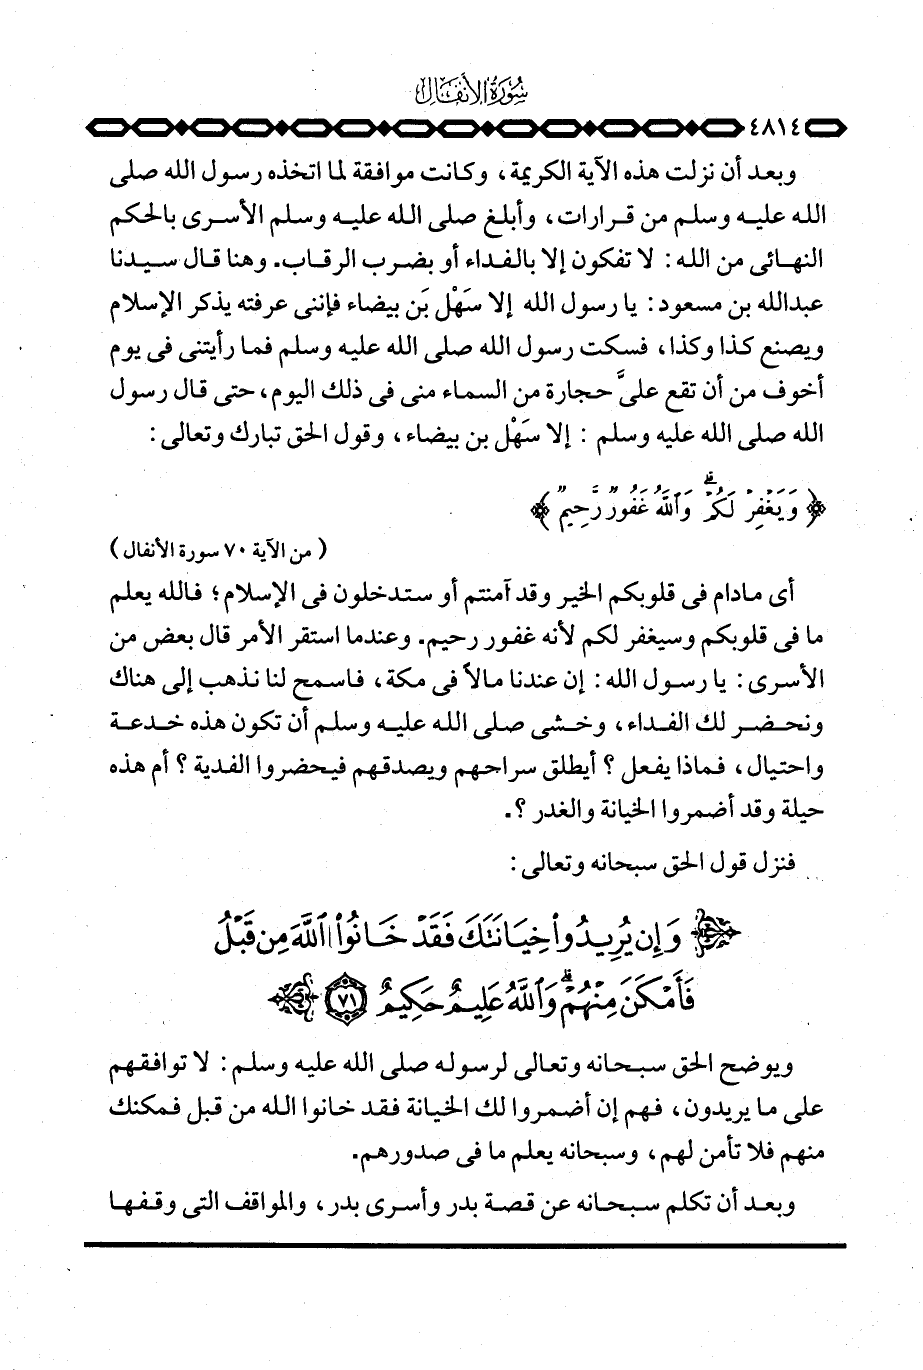 سورة الأنفال
٤٨١٤
وبعد أن نزلت هذه الآية الكريمة، وكانت موافقة لما اتخذه رسول الله صلى
الله عليه وسلم من قرارات، وأبلغ صلى الله عليه وسلم الأسرى بالحكم
النهائى من الله: لا تفكون إلا بالفداء أو بضرب الرقاب. وهنا قال سيدنا
عبدالله بن مسعود: يا رسول الله إلا سَهْل بَن بيضاء فإننى عرفته يذكر الإسلام
ويصنع كذا وكذا، فسكت رسول الله صلى الله عليه وسلم فما رأيتنى فى يوم
أخوف من أن تقع علىَّ حجارة من السماء منى فى ذلك اليوم، حتى قال رسول
الله صلى الله عليه وسلم : إلا سَهْل بن بيضاء، وقول الحق تبارك وتعالى:
﴿ وَيَغْفِرْ لَكُمْ ۗ وَاللَّهُ غَفُورٌ رَّحِيمٌ ﴾
( من الآية ٧٠ سورة الأنفال )
أى مادام فى قلوبكم الخير وقد آمنتم أو ستدخلون فى الإسلام؛ فالله يعلم
ما فى قلوبكم وسيغفر لكم لأنه غفور رحيم. وعندما استقر الأمر قال بعض من
الأسرى: يا رسول الله: إن عندنا مالاً فى مكة، فاسمح لنا نذهب إلى هناك
ونحضر لك الفداء، وخشى صلى الله عليه وسلم أن تكون هذه خدعة
واحتيال، فماذا يفعل ؟ أيطلق سراحهم ويصدقهم فيحضروا الفدية ؟ أم هذه
حيلة وقد أضمروا الخيانة والغدر ؟.
فنزل قول الحق سبحانه وتعالى:
﴿ وَإِن يُرِيدُوا خِيَانَتَكَ فَقَدْ خَانُوا اللَّهَ مِن قَبْلُ
فَأَمْكَنَ مِنْهُمْ ۗ وَاللَّهُ عَلِيمٌ حَكِيمٌ ٧١ ﴾
ويوضح الحق سبحانه وتعالى لرسوله صلى الله عليه وسلم: لا توافقهم
على ما يريدون، فهم إن أضمروا لك الخيانة فقد خانوا الله من قبل فمكنك
منهم فلا تأمن لهم، وسبحانه يعلم ما فى صدورهم.
وبعد أن تكلم سبحانه عن قصة بدر وأسرى بدر، والمواقف التى وقفها